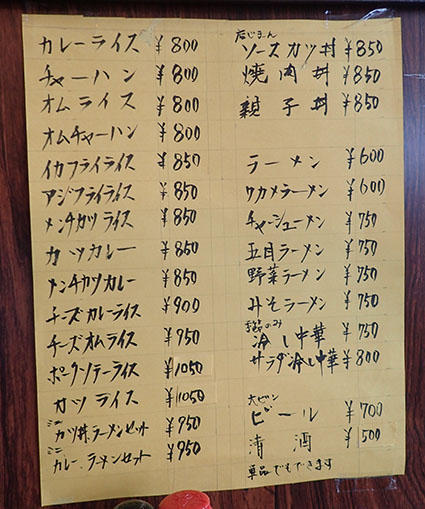 カレーライス ¥800
チャーハン ¥800
オムライス ¥800
オムチャーハン ¥800
イカフライライス ¥850
アジフライライス ¥850
メンチカツライス ¥850
カツカレー ¥850
メンチカツカレー ¥850
チーズカレーライス ¥900
チーズオムライス ¥950
ポークソテーライス ¥1050
カツライス ¥1050
ミニ
カツ丼.ラーメンセット ¥950
ミニ
カレー.ラーメンセット ¥950
店じまん
ソースカツ丼 ¥850
焼肉丼 ¥850
親子丼 ¥850
ラーメン ¥600
ワカメラーメン ¥600
チャーシューメン ¥750
五目ラーメン ¥750
野菜ラーメン ¥750
みそラーメン ¥750
季節のみ
冷し中華 ¥750
サラダ冷し中華 ¥800
大ビン
ビール ¥700
清酒 ¥500
単品でもできます